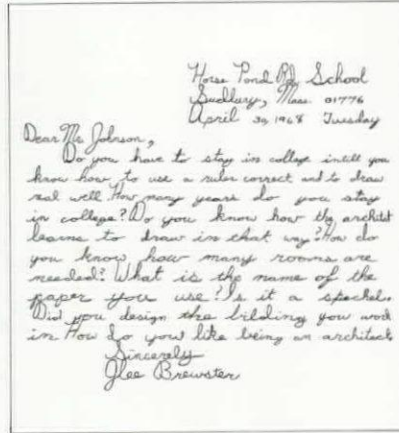 Horse Pond Rd. School
Sudbury, Mass. 01776
April 30, 1968 Tuesday
Dear Mr. Johnson,
Do you have to stay in collage intill you
know how to use a ruler correct and to draw
real well. How many years do you stay
in college? Do you know how the architit
learns to draw in that way? How do
you know how many rooms are
needed? What is the name of the
paper you use? Is it a spechel.
Did you design the bilding you work
in How do you like being an architect
Sincerely
Brewster